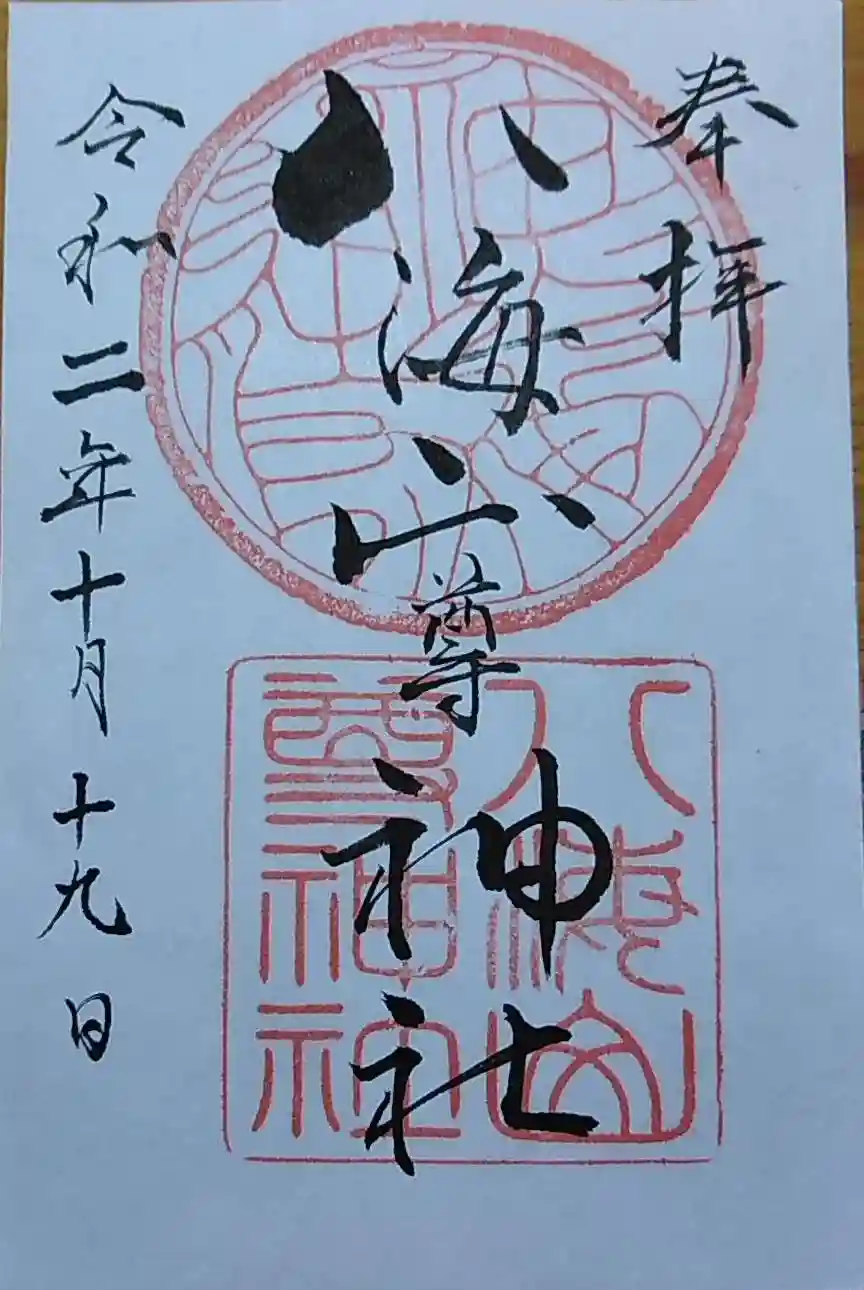 奉拝
八海山尊神社
令和二年十月十九日
八海山
尊神社